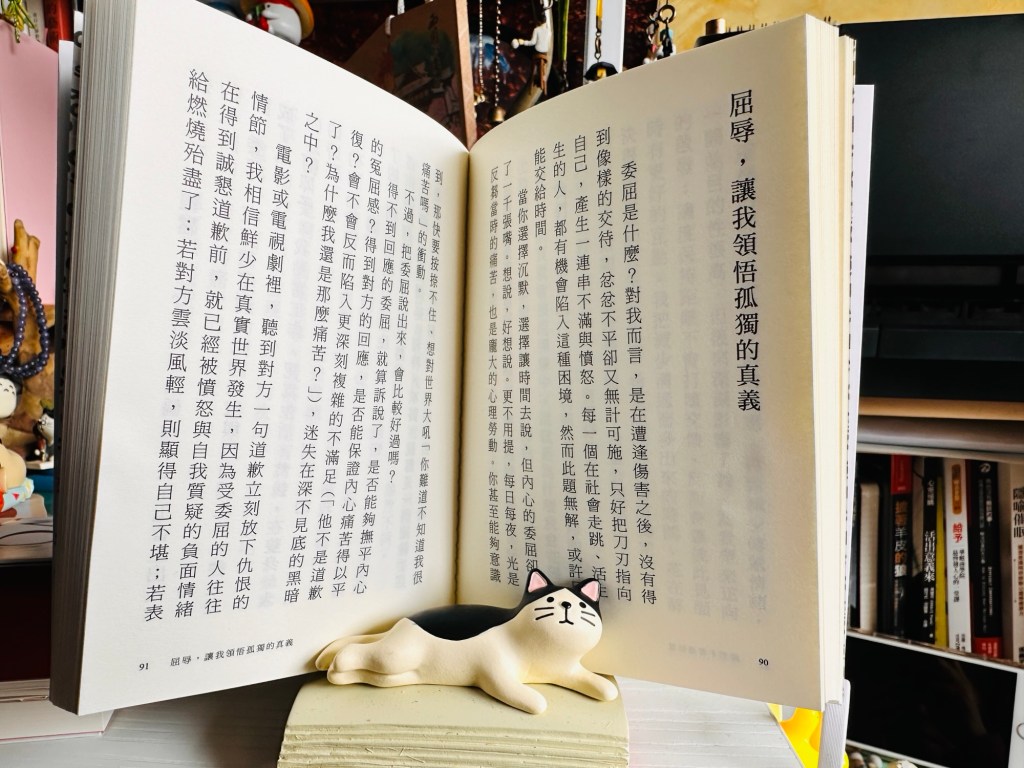 屈辱，讓我領悟孤獨的真義
委屈是什麼？對我而言，是在遭逢傷害之後，沒有得
到像樣的交待，忿忿不平卻又無計可施，只好把刀刃指向
自己，產生一連串不滿與憤怒。每一個在社會走跳、活生
生的人，都有機會陷入這種困境，然而此題無解，或許
能交給時間。
當你選擇沉默，選擇讓時間去說，但內心的委屈卻
了一千張嘴。想說，好想說。更不用提，每日每夜，光是
反芻當時的痛苦，也是龐大的心理勞動。你甚至能夠意識
90
到，那快要按捺不住，想對世界大吼「你難道不知道我很
痛苦嗎」的衝動。
不過，把委屈說出來，會比較好過嗎？
得不到回應的委屈，就算訴說了，是否能夠撫平內心
的冤屈感？得到對方的回應，是否能保證內心痛苦得以平
復？會不會反而陷入更深刻複雜的不滿足（「他不是道歉
了？為什麼我還是那麼痛苦？」），迷失在深不見底的黑暗
之中？
電影或電視劇裡，聽到對方一句道歉立刻放下仇恨的
情節，我相信鮮少在真實世界發生，因為受委屈的人往往
在得到誠懇道歉前，就已經被憤怒與自我質疑的負面情緒
給燃燒殆盡了：若對方雲淡風輕，則顯得自己不堪；若表
91 屈辱，讓我領悟孤獨的真義
披著羊皮的狼
活出意義來
給予